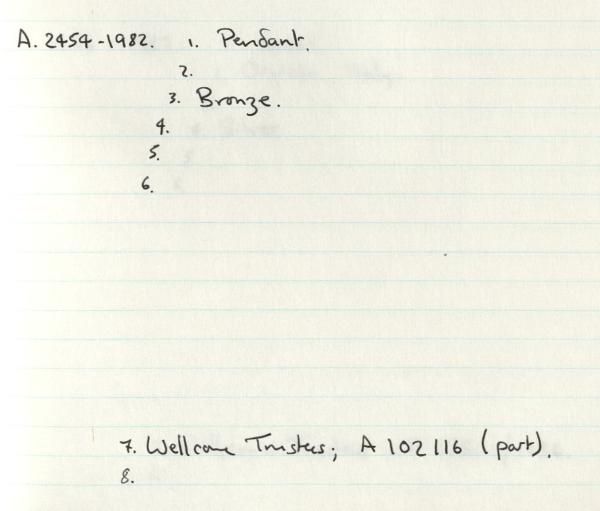 A. 2454-1982. 1. Pendant.
2.
3. Bronze.
4.
5.
6.
7. Wellcome Trustees; A 102116 (part).
8.